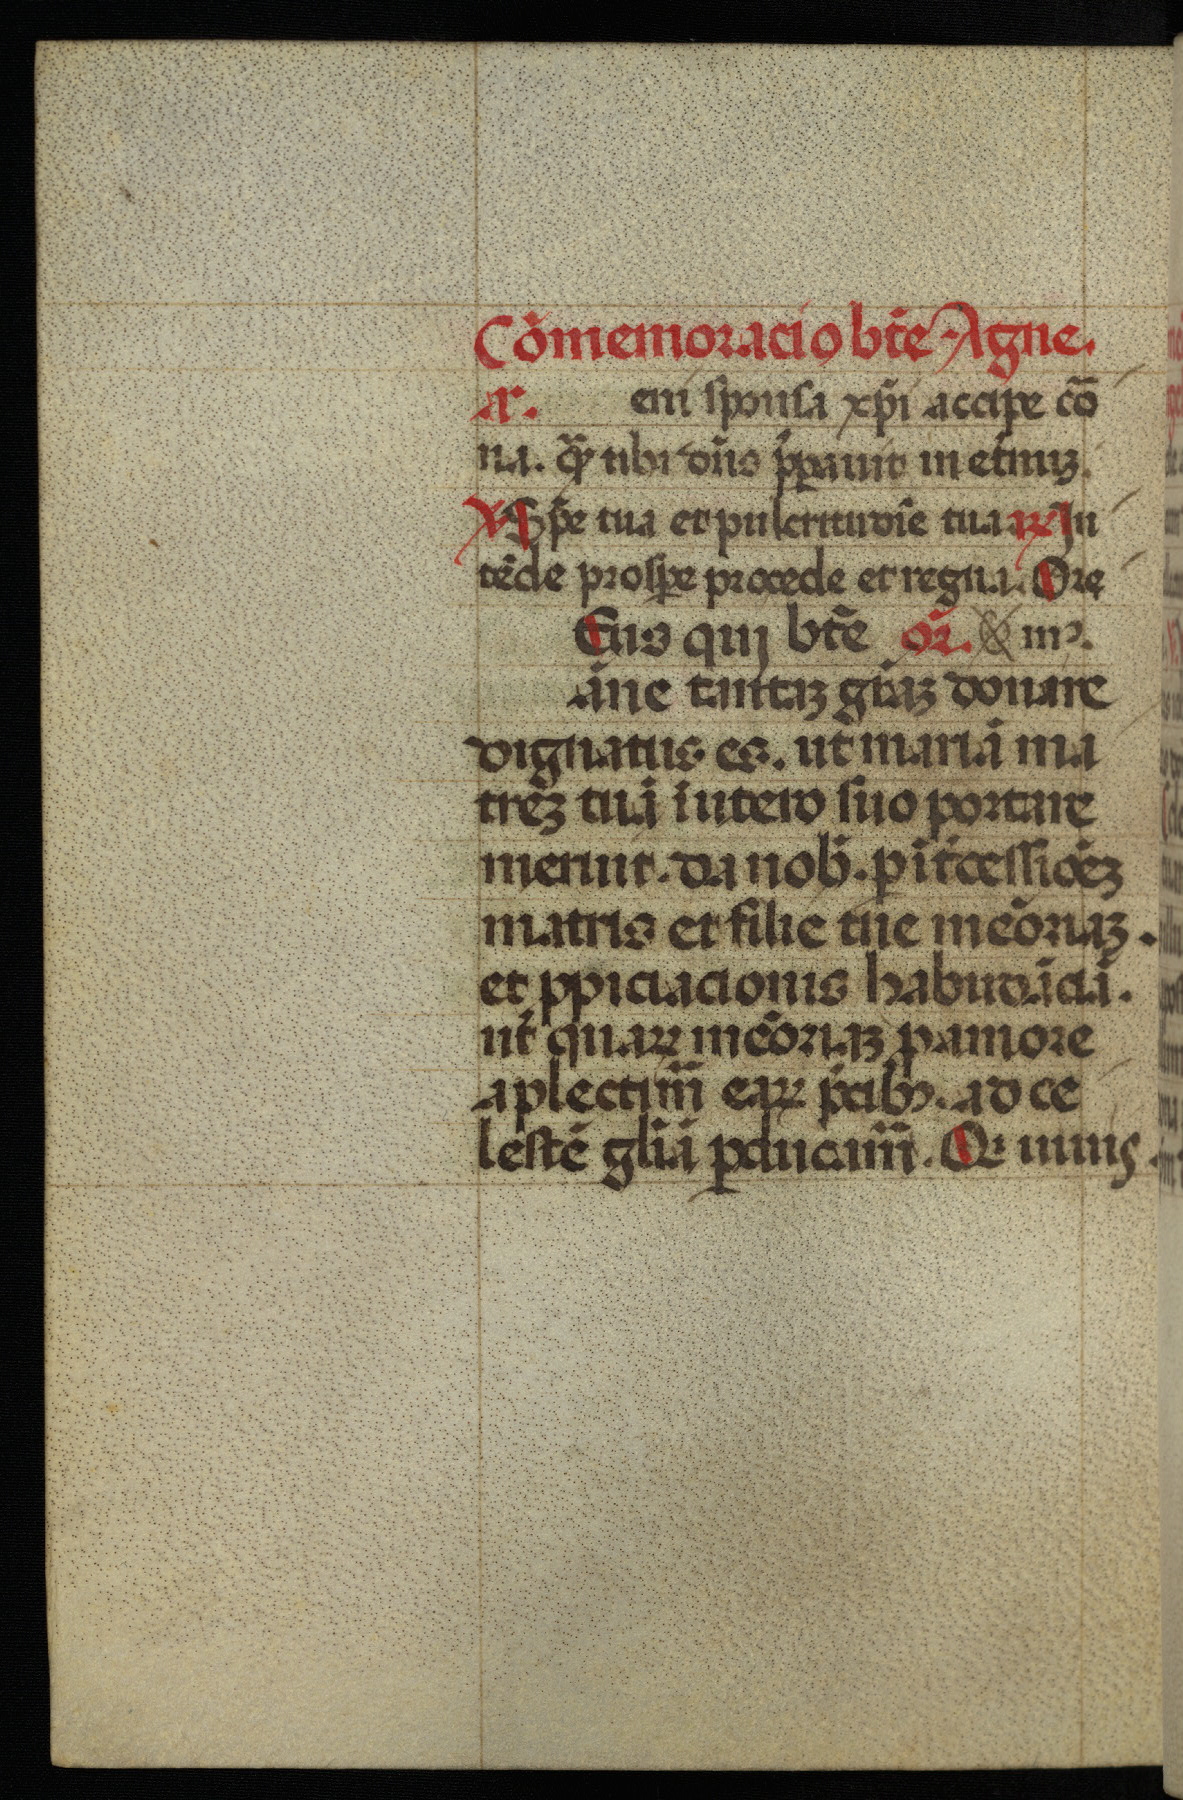 Cōmemoracio btē Agne.
aͬ. eni sponsa xp̄i accipe cō
na. qꝫ tibi dn̄s p̄parauit in et̄nuꝫ.
℣ Spē tua et pulcritudīe tua ℟ In
tēde prospe procede et regna. Ore
Eus qui btē or̄. & mͥ.
āne tantaꝫ gr̄aꝫ donare
dignatus es. ut mariā ma
trēꝫ tuā ī utero suo portare
meruit. da nob̄. p īt̄cessiōēꝫ
matris et filie tue mēōriaꝫ.
et ppiciacionis habūdāciā.
ut quaꝝ mēōriaꝫ p amore
aplectim̄ eaꝝ p̄cibꝫ. ad ce
lestē glīā ꝑducam̄. Qͥ uiuis.